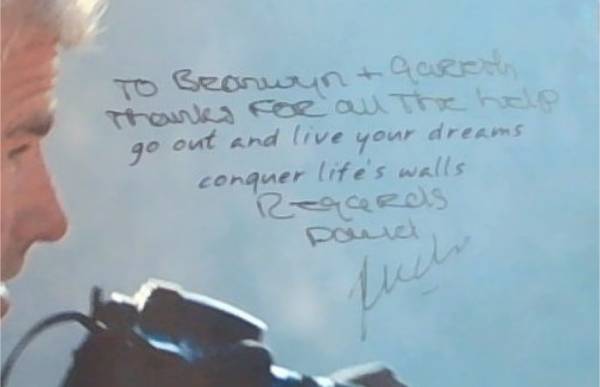 TO Bronwyn + Gareth
Thanks FOR all The help
go out and live your dreams
conquer life's walls
Regards
David